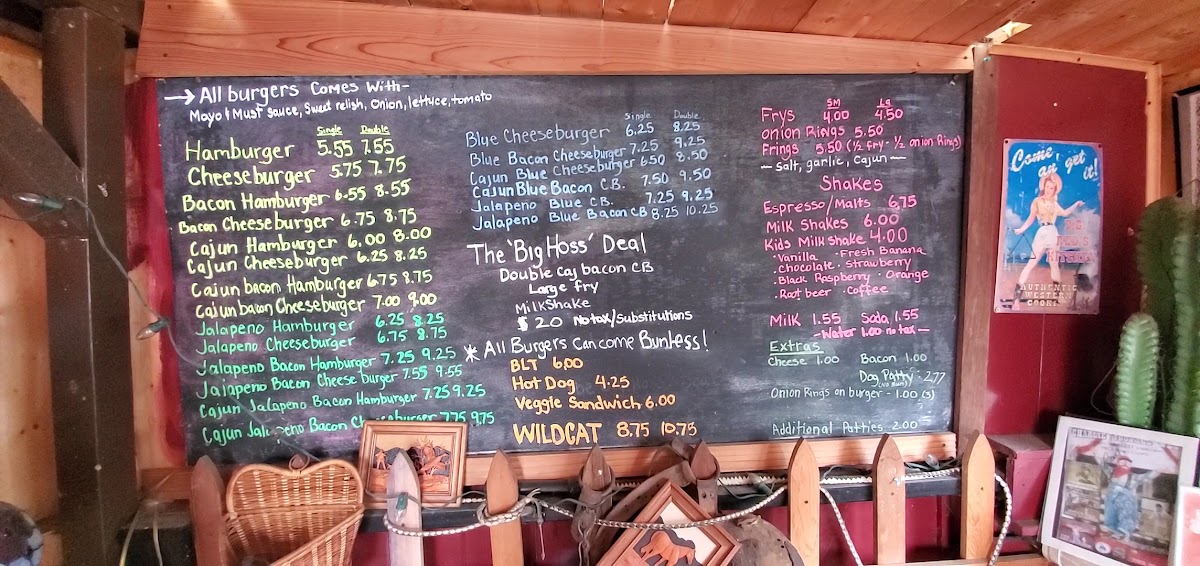 → All burgers Comes With-
Mayo & Must Sauce, Sweet relish, Onion, lettuce, tomato
Single Double
Hamburger 5.55 7.55
Cheeseburger 5.75 7.75
Bacon Hamburger 6.55 8.55
Bacon Cheeseburger 6.75 8.75
Cajun Hamburger 6.00 8.00
Cajun Cheeseburger 6.25 8.25
Cajun bacon Hamburger 6.75 8.75
Cajun bacon Cheeseburger 7.00 9.00
Jalapeno Hamburger 6.25 8.25
Jalapeno Cheeseburger 6.75 8.75
Jalapeno Bacon Hamburger 7.25 9.25
Jalapeno Bacon Cheese burger 7.55 9.55
Cajun Jalapeno Bacon Hamburger 7.25 9.25
Cajun Bacon 7.75 9.75
Single Double
Blue Cheeseburger 6.25 8.25
Blue Bacon Cheeseburger 7.25 9.25
Cajun Blue Cheeseburger 6.50 8.50
Cajun Blue Bacon C.B. 7.50 9.50
Jalapeno Blue C.B. 7.25 9.25
Jalapeno Blue Bacon CB 8.25 10.25
The 'Big Hoss' Deal
Double Caj bacon CB
Large fry
MilkShake
$ 20 No tax/substitutions
* All Burgers Can come Bunless!
BLT 6.00
Hot Dog 4.25
Veggie Sandwich 6.00
WILDCAT 8.75 10.75
SM Lg
Frys 4.00 4.50
onion Rings 5.50
Frings 5.50 (½ fry - ½ onion Rings)
— Salt, garlic, Cajun —
Shakes
Espresso/Malts 6.75
Milk Shakes 6.00
Kids Milk Shake 4.00
· Vanilla · Fresh Banana
· chocolate · Strawberry
· Black Raspberry · Orange
· Root beer · Coffee
Milk 1.55 Soda 1.55
— Water 1.00 no tax —
Extras
Cheese 1.00 Bacon 1.00
Dog Patty - 2.77
(No Buns)
Onion Rings on burger - 1.00 (3)
Additional Patties 2.00
Come an' get it!
AUTHENTIC
WESTERN